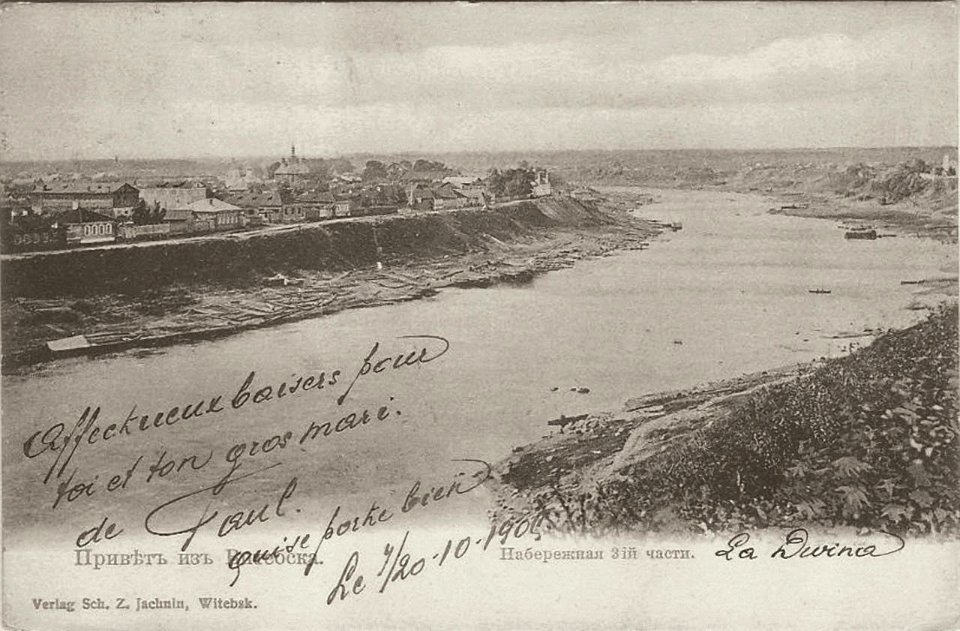 Affectueux baisers pour
toi et ton gros mari.
de Paul.
qui se porte bien
Le 7/20-10-1905
Привѣтъ изъ Витебска.
Набережная 3ій части.
La Dwina
Verlag Sch. Z. Jachnin, Witebsk.